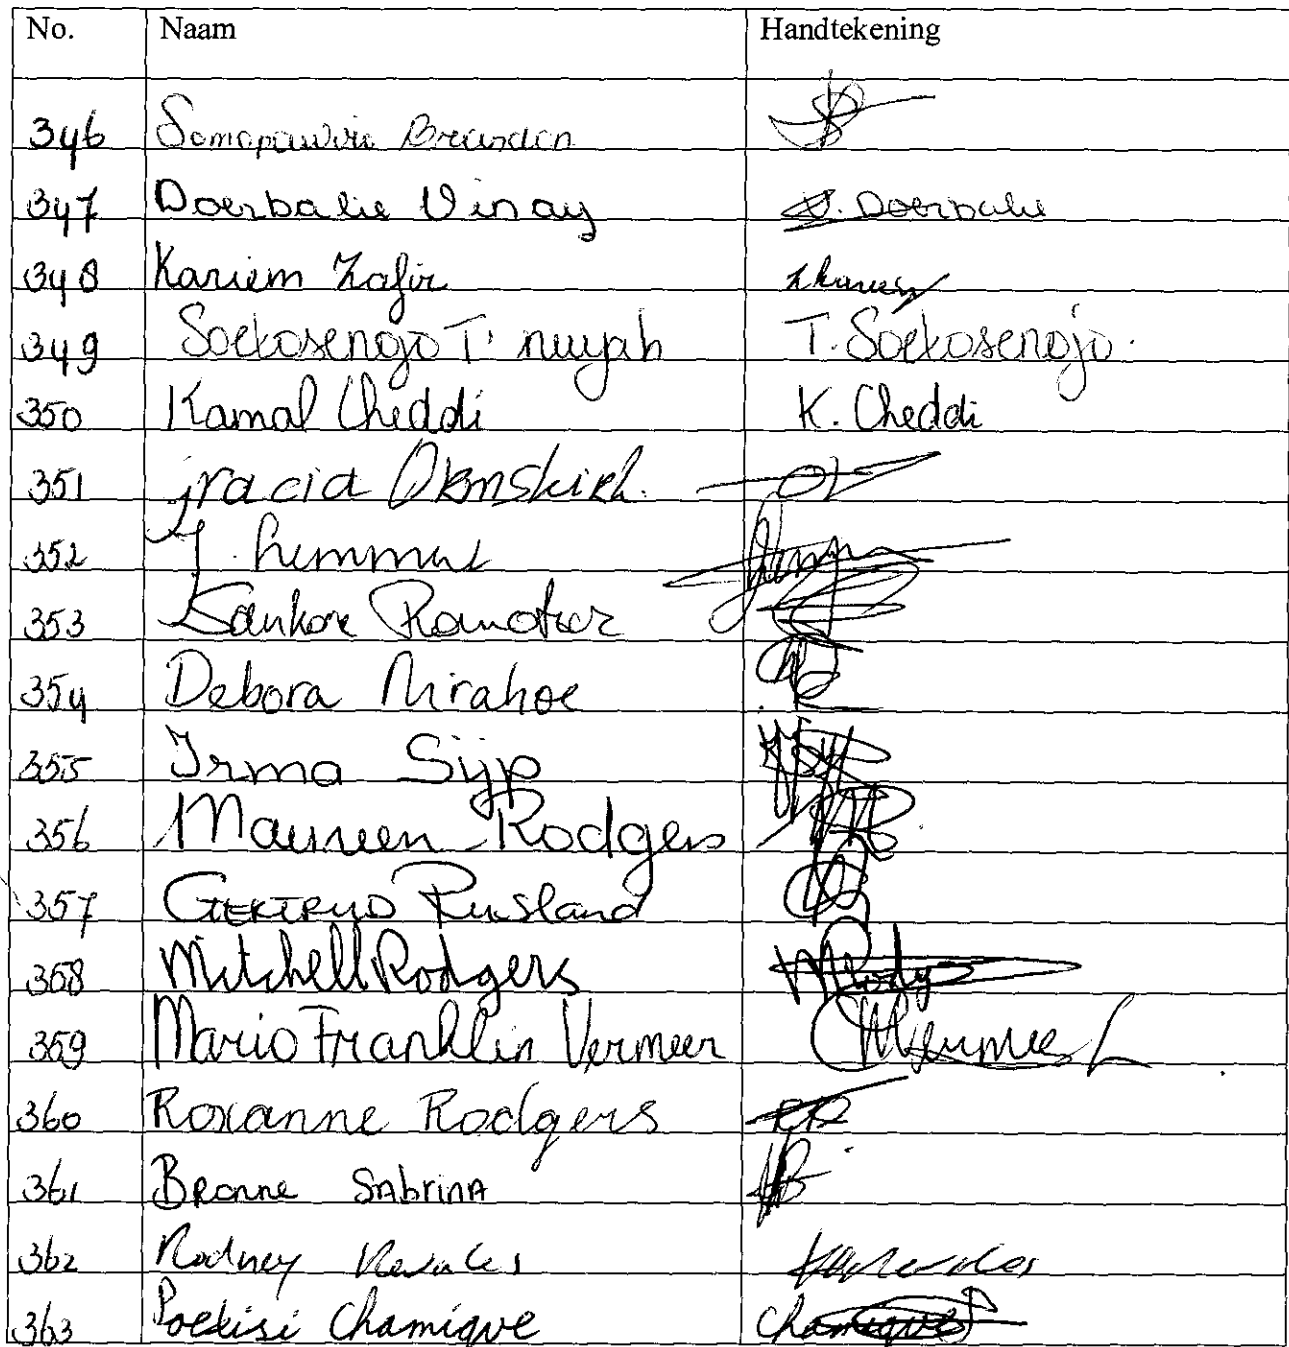 No. Naam Handtekening
346 Somopawiro Brandon
347 Doerbalie Vinay V. Doerbalie
348 Kariem Zafir
349 Soekosengo T. nuyah T. Soekosenojo.
350 Kamal Cheddi K. Cheddi
351 gracia Ormskirk.
352
353 Sankar
354 Debora Nirahoe
355 Irma Sijp
356 Maureen Rodgers
357 Gertrud Rusland
358 Mitchell Rodgers
359 Mario Franklin Vermeer
360 Roxanne Rodgers RR
361 Bronne Sabrina
362 Rodney
363 Poekisi Chamique Chamique